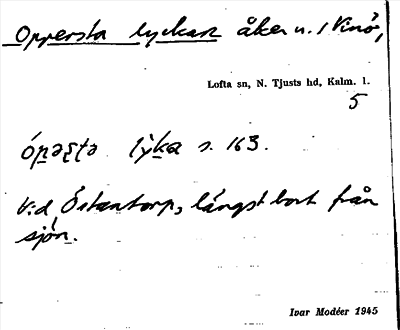 Oppersta lyckan åker n. i Vinö,
Lofta sn, N. Tjusts hd, Kalm. l.
5
lỳka s. 163.
Vid Östantorp, längst bort från
sjön.
Ivar Modéer 1945